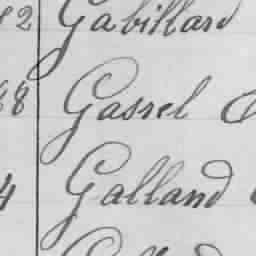 82 Gabillard
88 Gasrel
4 Galland